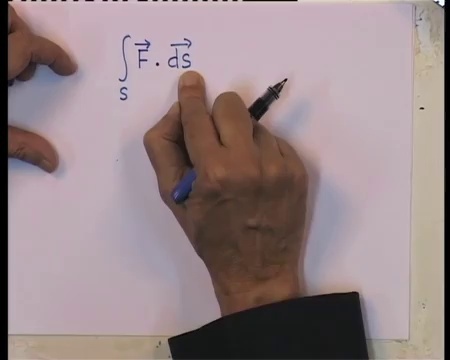 ∫_S F⃗ · ds⃗